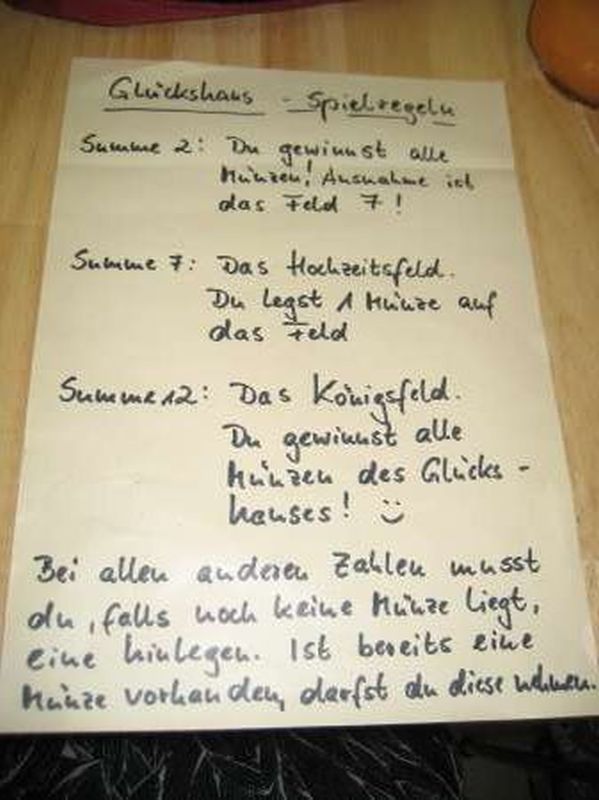 Glückshaus - Spielregeln
Summe 2: Du gewinnst alle
Münzen! Ausnahme ist
das Feld 7!
Summe 7: Das Hochzeitsfeld.
Du legst 1 Münze auf
das Feld
Summe 12: Das Königsfeld.
Du gewinnst alle
Münzen des Glücks-
hauses! :)
Bei allen anderen Zahlen musst
du, falls noch keine Münze liegt,
eine hinlegen. Ist bereits eine
Münze vorhanden, darfst du diese nehmen.